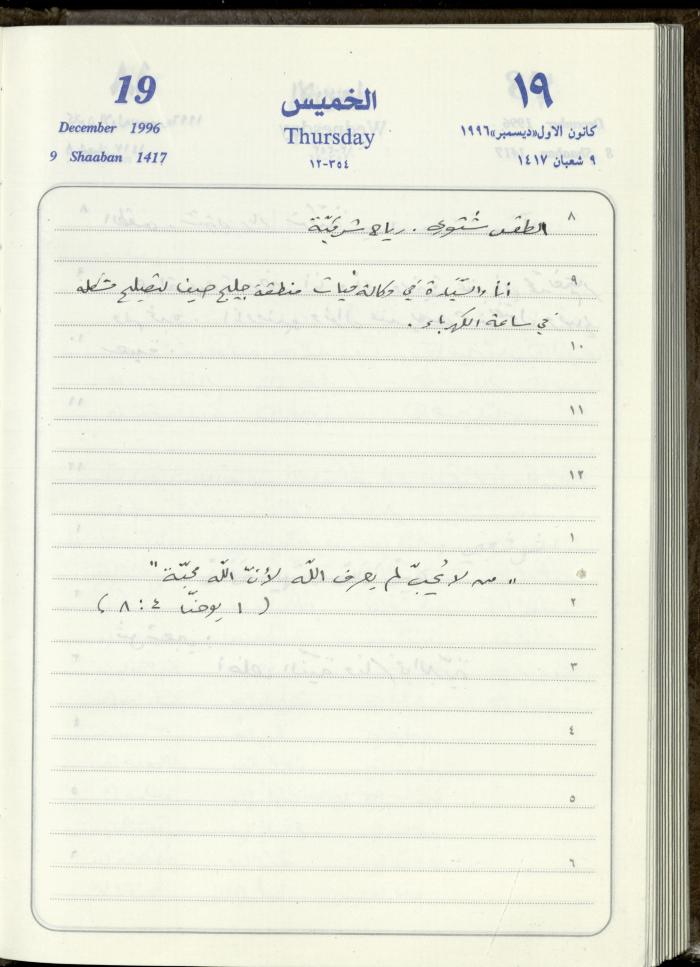 19
December 1996
9 Shaaban 1417
الخميس
Thursday
١٢-٣٥٤
١٩
كانون الاول«ديسمبر»١٩٩٦
٩ شعبان ١٤١٧
٨ الطقس شتوي. رياح شرقيّة
٩ أنا والسّيّدة في وكالة فيات منطقة خليج حيفا لتصليح مشكلة
في ساعة الكهرباء.
١٠
١١
١٢
١
"من لا يُحِبّ لم يعرف الله لأنّ الله محبّة"
٢ (١ يوحنّا ٤:٨)
٣
٤
٥
٦